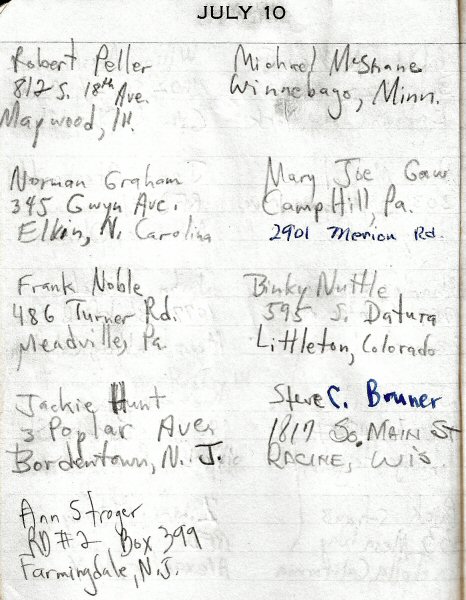 JULY 10
Robert Peller
812 S. 18th Ave.
Maywood, Ill.
Norman Graham
345 Gwyn Ave.
Elkin, N. Carolina
Frank Noble
486 Turner Rd.
Meadville, Pa.
Jackie Hunt
3 Poplar Ave.
Bordentown, N. J.
Ann Stroger
RD #2 Box 399
Farmingdale, N.J.
Michael McShane
Winnebago, Minn.
Mary Joe Gaw
Camp Hill, Pa.
2901 Merion Rd.
Binky Nuttle
595 S. Datura
Littleton, Colorado
Steve C. Bruner
1817 So. MAIN ST
RACINE, WIS